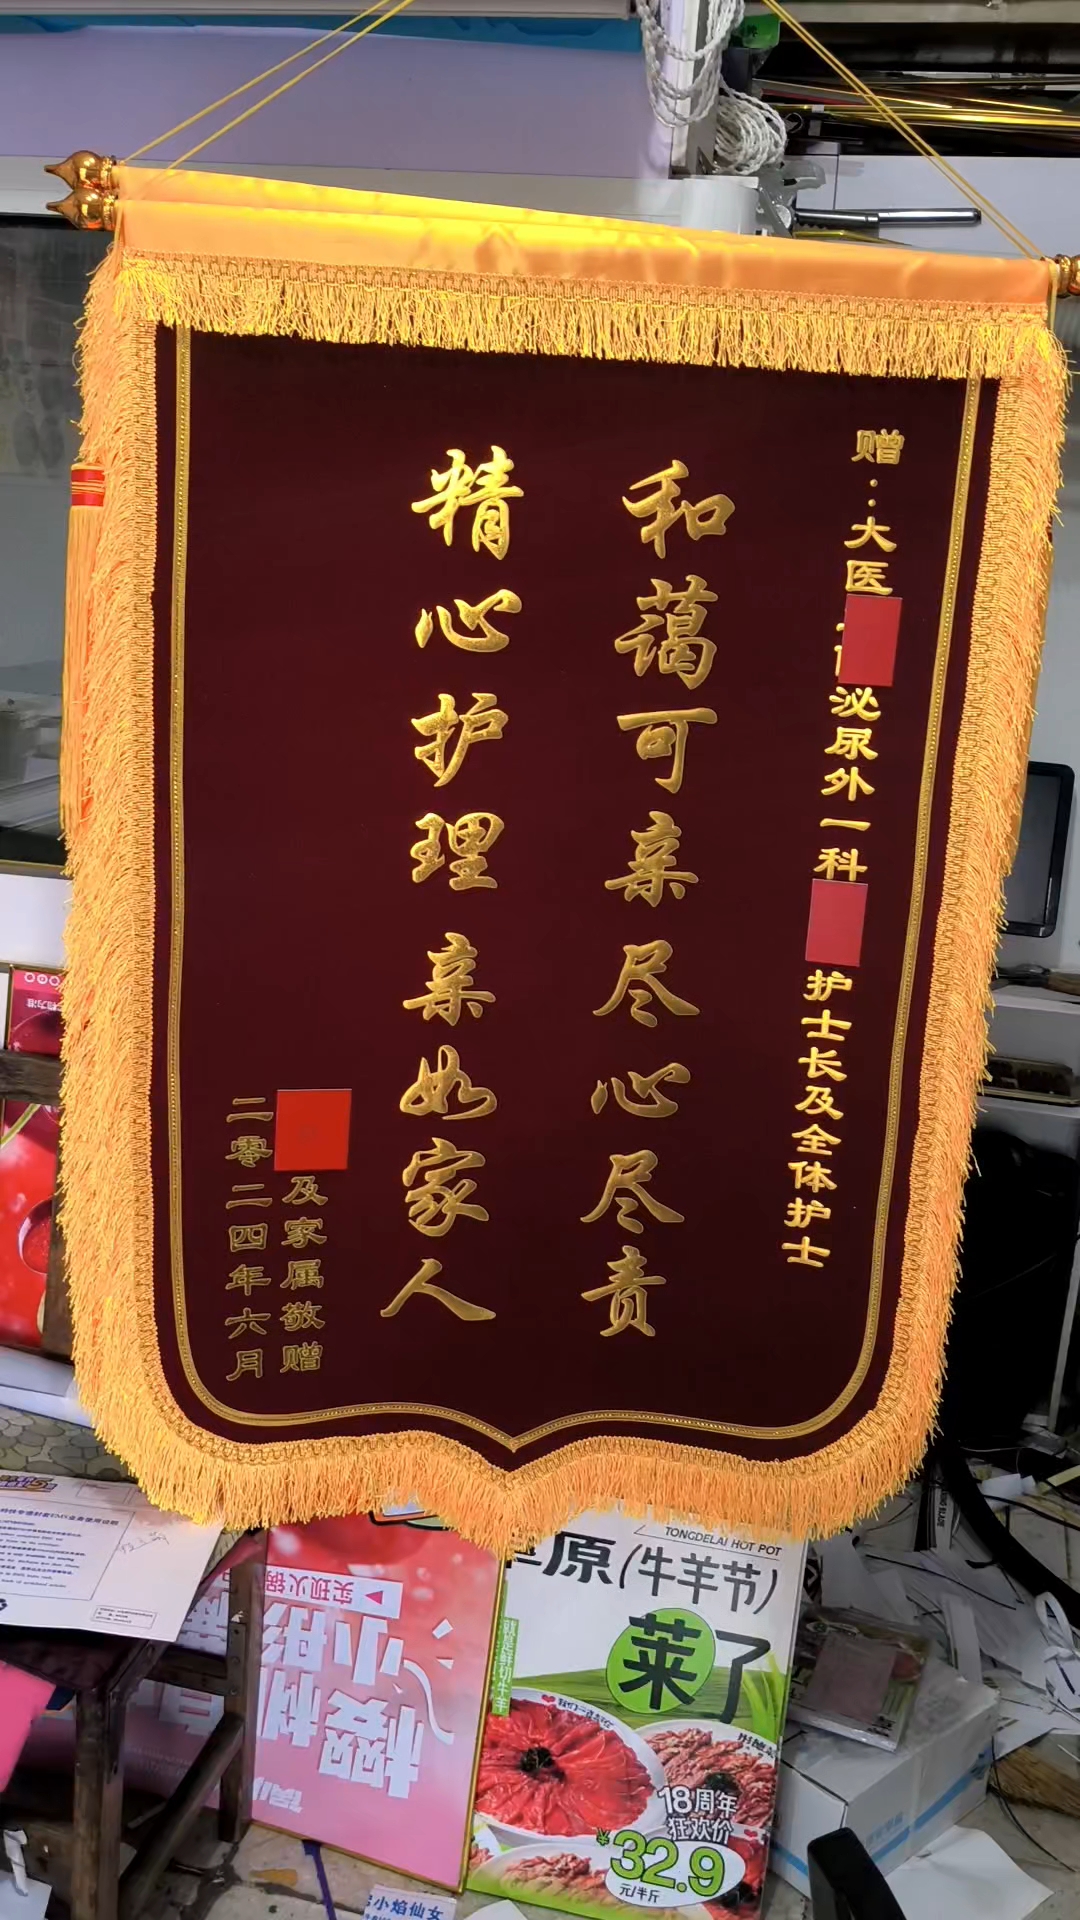 赠：大医
泌尿外一科
护士长及全体护士
和蔼可亲尽心尽责
精心护理亲如家人
及家属敬赠
二零二四年六月
TONGDELAI HOT POT
原(牛羊节)
莱了
就是鲜切牛羊
18周年
狂欢价
¥32.9
元/半斤
实现火锅
小彤
樱桃
小焰仙女